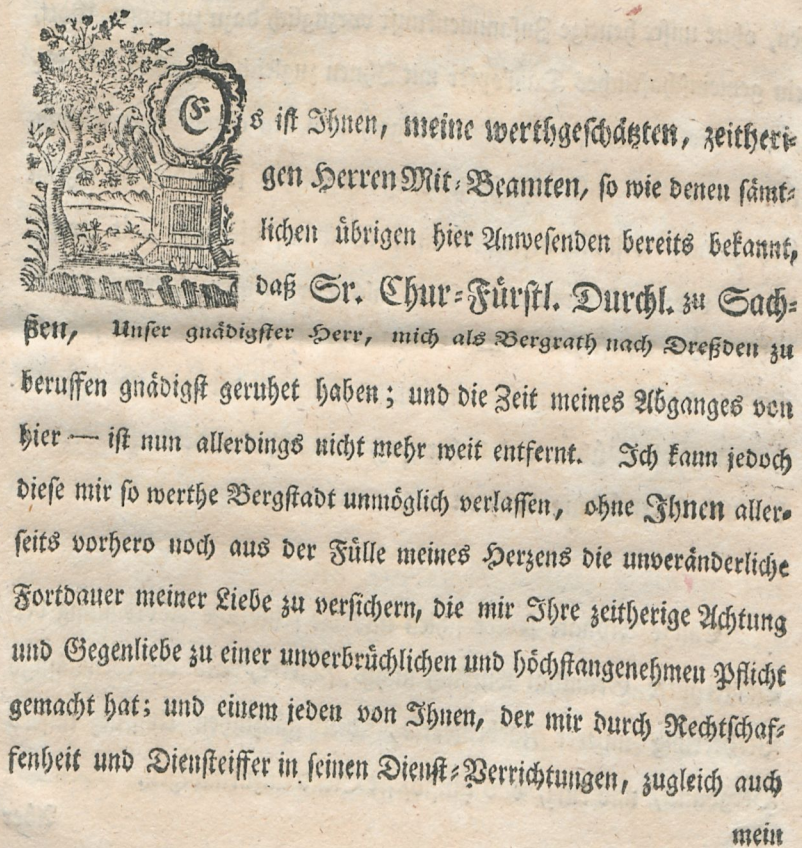 Es ist Ihnen, meine werthgeschätzten, zeitheri-
gen Herren Mit-Beamten, so wie denen sämt-
lichen übrigen hier Anwesenden bereits bekannt,
daß Sr. Chur-Fürstl. Durchl. zu Sach-
ßen, Unser gnädigster Herr, mich als Bergrath nach Dreßden zu
beruffen gnädigst geruhet haben; und die Zeit meines Abganges von
hier — ist nun allerdings nicht mehr weit entfernt. Ich kann jedoch
diese mir so werthe Bergstadt unmöglich verlassen, ohne Ihnen aller-
seits vorhero noch aus der Fülle meines Herzens die unveränderliche
Fortdauer meiner Liebe zu versichern, die mir Ihre zeitherige Achtung
und Gegenliebe zu einer unverbrüchlichen und höchstangenehmen Pflicht
gemacht hat; und einem jeden von Ihnen, der mir durch Rechtschaf-
fenheit und Diensteiffer in seinen Dienst-Verrichtungen, zugleich auch
mein